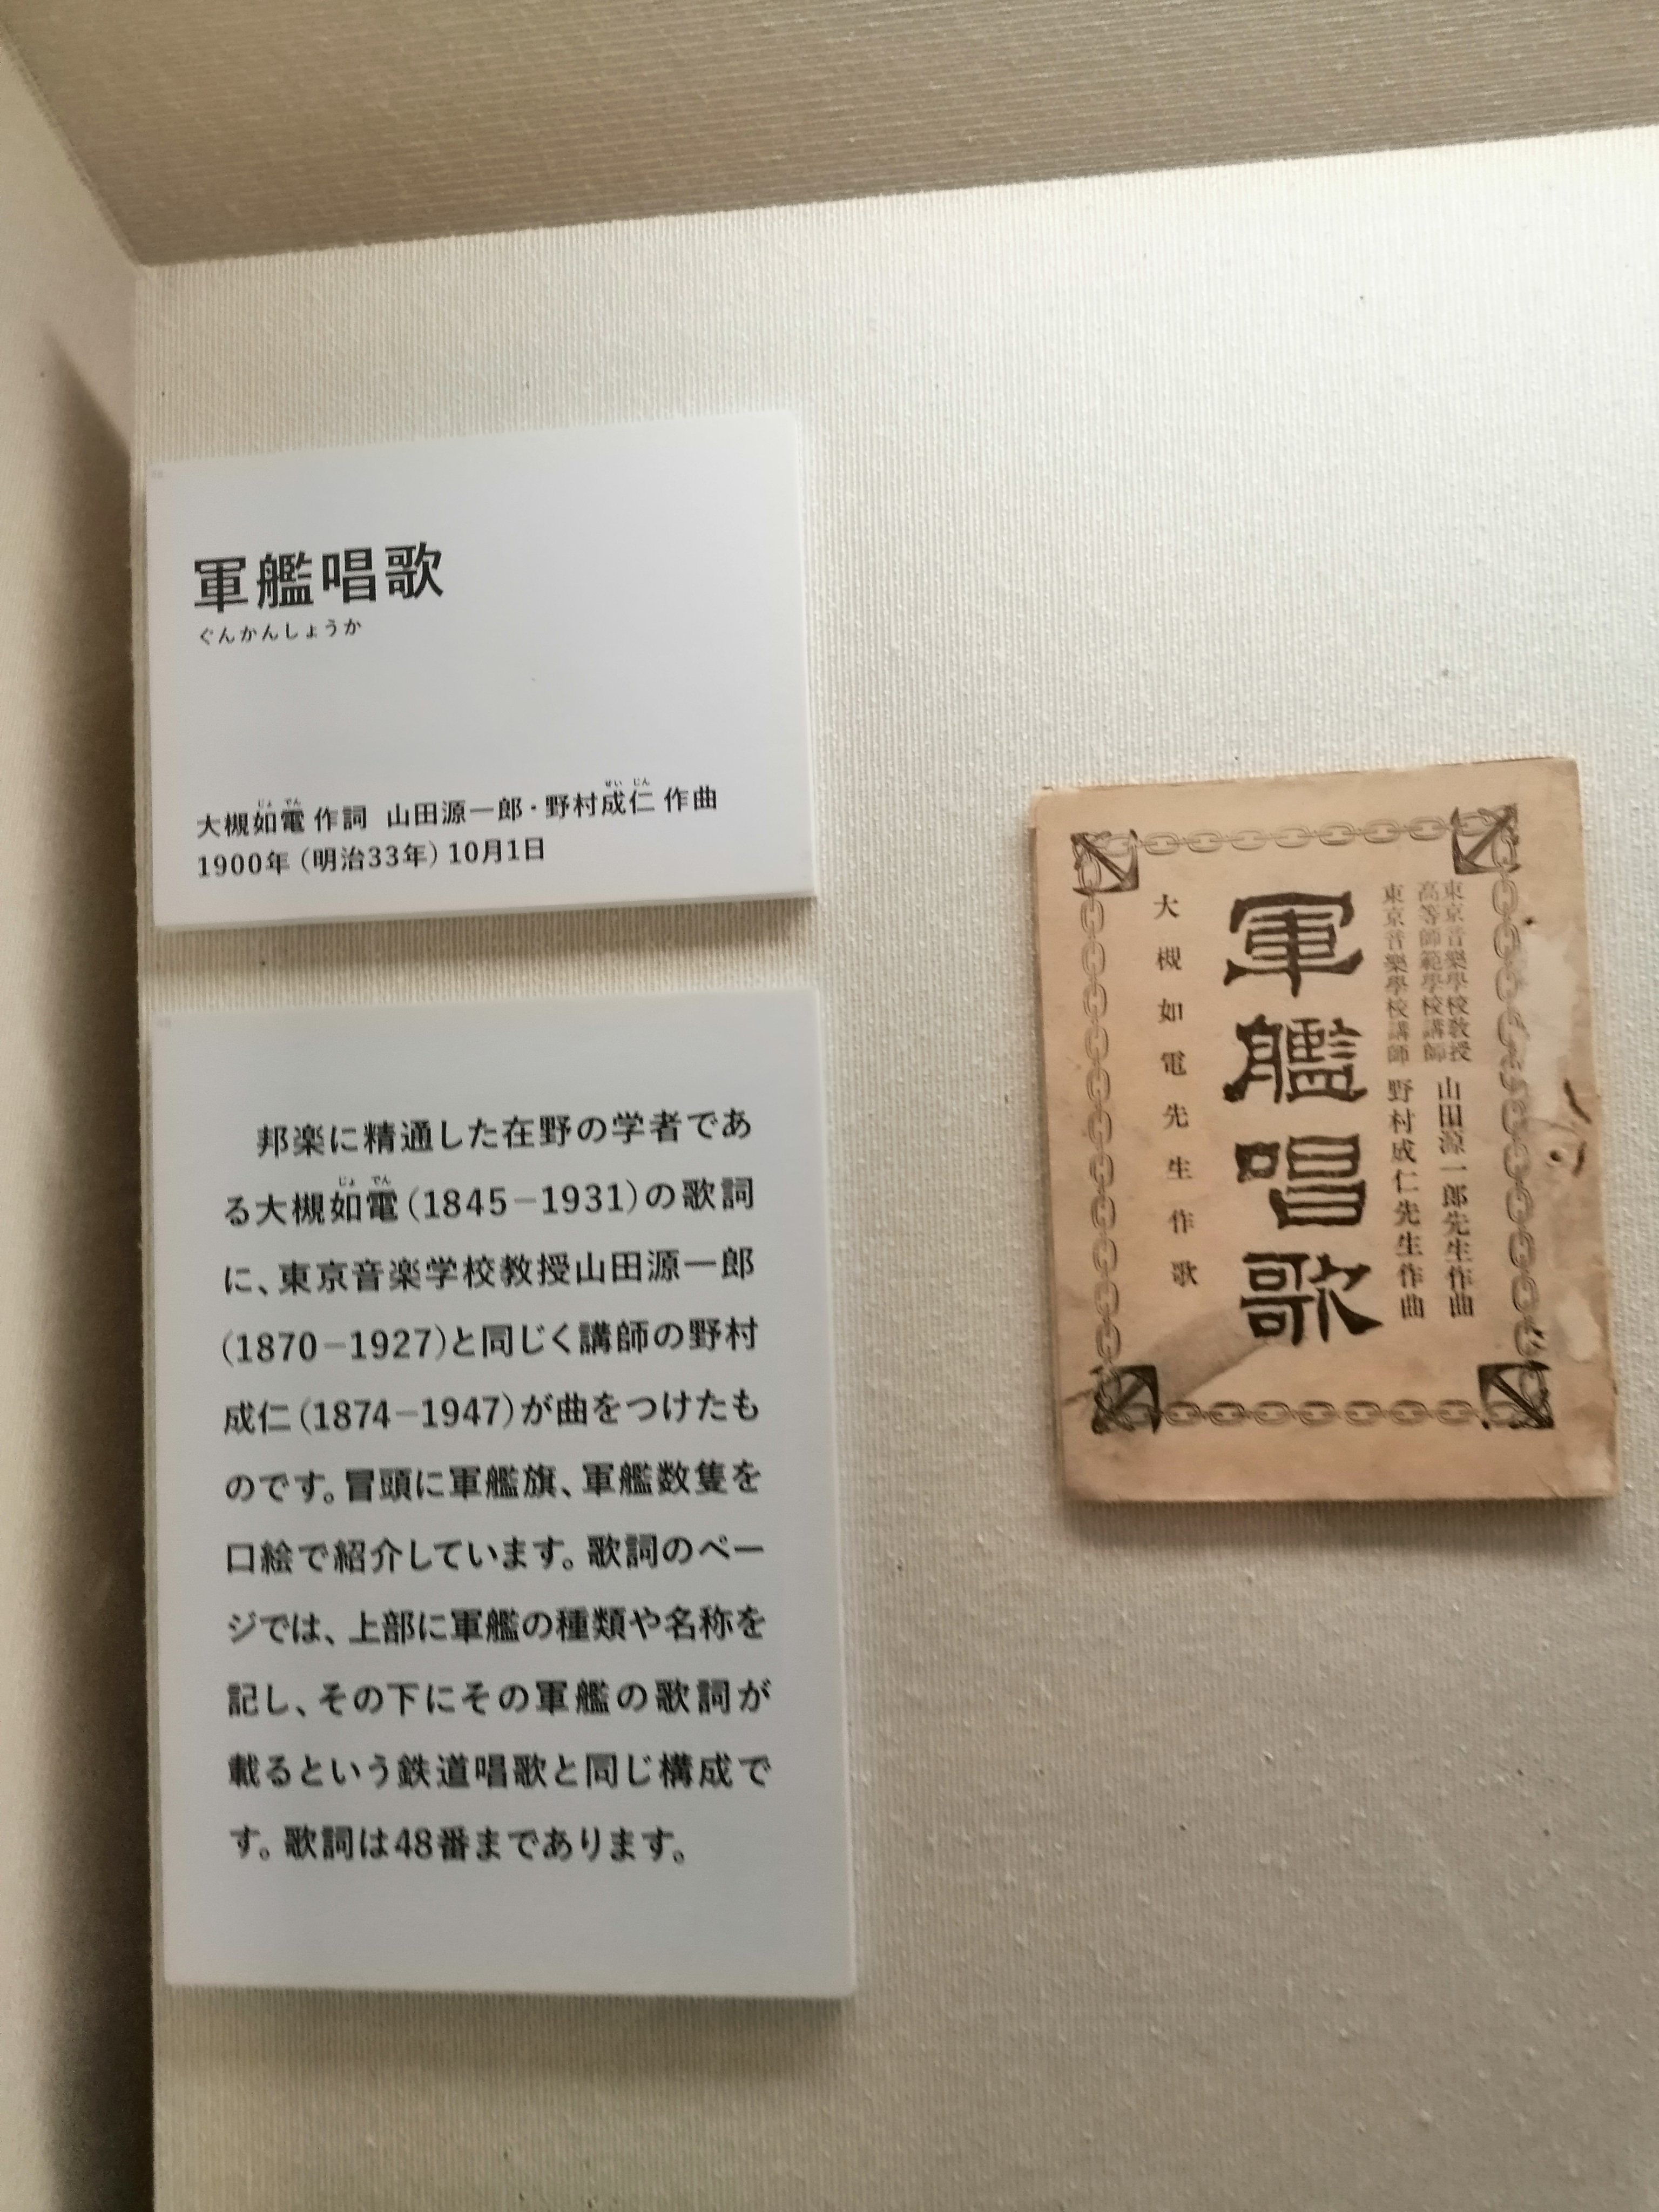 軍艦唱歌
ぐんかんしょうか
じょでん せいじん
大槻如電 作詞 山田源一郎・野村成仁 作曲
1900年（明治33年）10月1日
邦楽に精通した在野の学者であ
じょでん
る大槻如電（1845－1931）の歌詞
に、東京音楽学校教授山田源一郎
（1870－1927）と同じく講師の野村
成仁（1874－1947）が曲をつけたも
のです。冒頭に軍艦旗、軍艦数隻を
口絵で紹介しています。歌詞のペー
ジでは、上部に軍艦の種類や名称を
記し、その下にその軍艦の歌詞が
載るという鉄道唱歌と同じ構成で
す。歌詞は48番まであります。
東京音樂學校教授
高等師範學校講師
山田源一郎先生作曲
東京音樂學校講師 野村成仁先生作曲
軍艦唱歌
大槻如電先生作歌